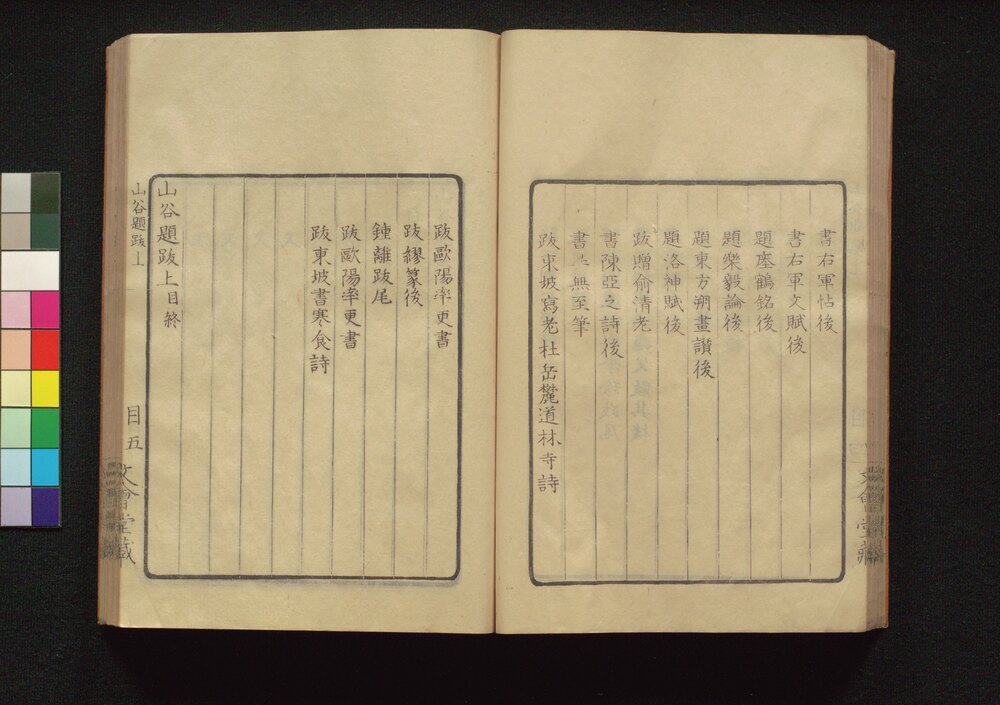 書右軍帖後
書右軍文賦後
題瘞鶴銘後
題樂毅論後
題東方朔畫讚後
題洛神賦後
跋贈俞清老
書陳亞之詩後
無至筆
跋東坡寫老杜岳麓道林寺詩
文會堂藏
跋歐陽率更書
跋繆篆後
鍾離跋尾
跋歐陽率更書
跋東坡書寒食詩
山谷題跋上目終
山谷題跋上
目五
文會堂藏